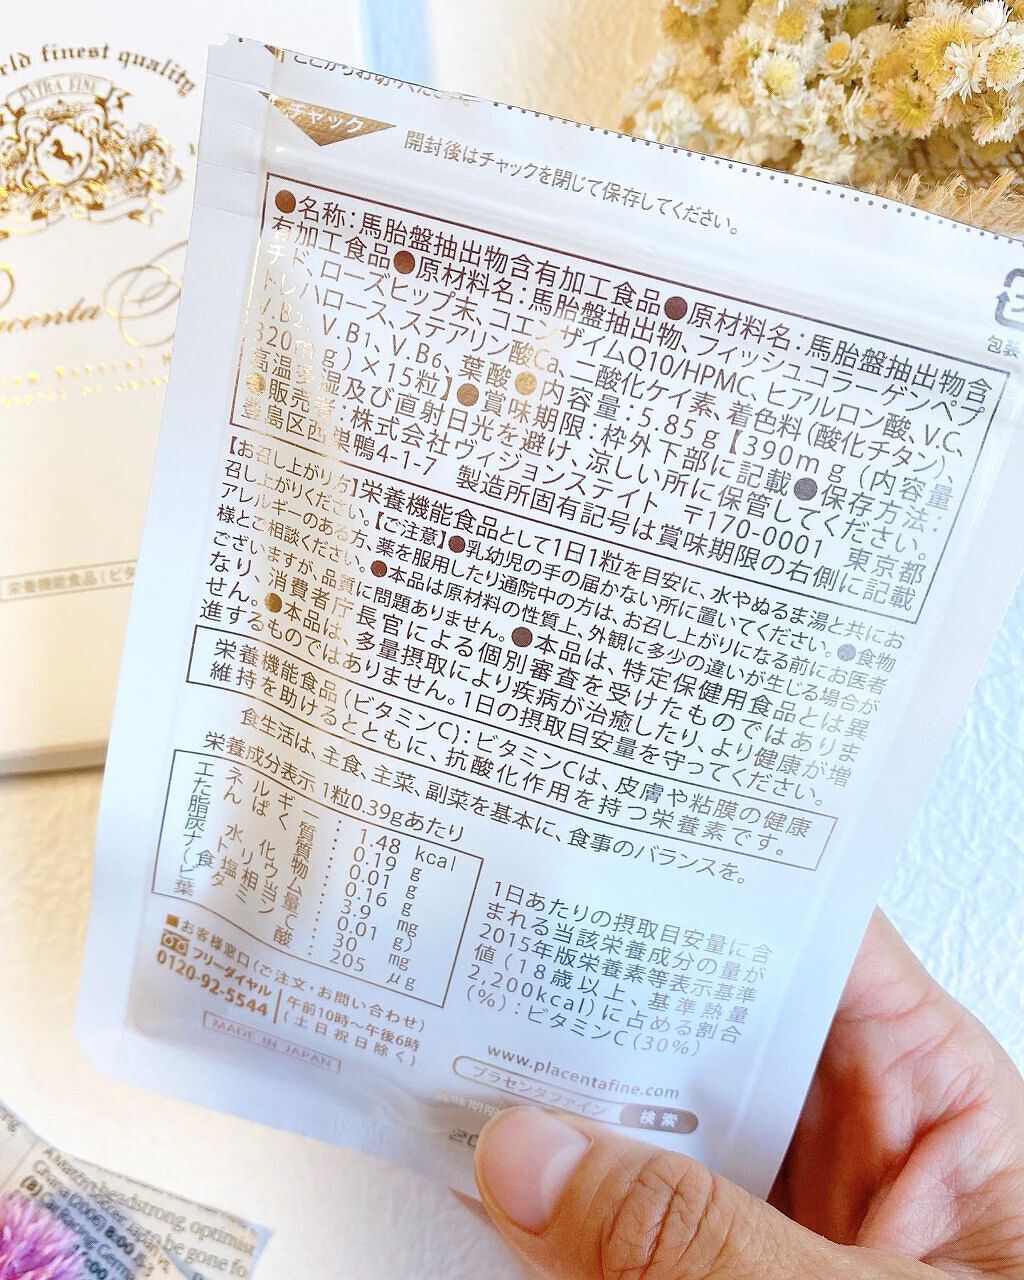 rld finest quality
EXTRA FINE
acenta
栄養機能食品(ビタ
ここからお切りください。
チャック
開封後はチャックを閉じて保存してください。
●名称:馬胎盤抽出物含有加工食品●原材料名:馬胎盤抽出物含
有加工食品●原材料名:馬胎盤抽出物、フィッシュコラーゲンペプ
チド、ローズヒップ末、コエンザイムQ10/HPMC、ヒアルロン酸、V.C、
トレハロース、ステアリン酸Ca、二酸化ケイ素、着色料(酸化チタン)、
V.B2、V.B1、V.B6、葉酸●内容量:5.85g【390mg(内容量
320mg)×15粒】●賞味期限:枠外下部に記載●保存方法:
高温多湿及び直射日光を避け、涼しい所に保管してください。
●販売者:株式会社ヴィジョンステイト 〒170-0001 東京都
豊島区西巣鴨4-1-7 製造所固有記号は賞味期限の右側に記載
【お召し上がり方】栄養機能食品として1日1粒を目安に、水やぬるま湯と共にお
召し上がりください。【ご注意】●乳幼児の手の届かない所に置いてください。●食物
アレルギーのある方、薬を服用したり通院中の方は、お召し上がりになる前にお医者
様とご相談ください。●本品は原材料の性質上、外観に多少の違いが生じる場合が
ございますが、品質に問題ありません。●本品は、特定保健用食品とは異
なり、消費者庁長官による個別審査を受けたものではありま
せん。●本品は、多量摂取により疾病が治癒したり、より健康が増
進するものではありません。1日の摂取目安量を守ってください。
栄養機能食品(ビタミンC):ビタミンCは、皮膚や粘膜の健康
維持を助けるとともに、抗酸化作用を持つ栄養素です。
食生活は、主食、主菜、副菜を基本に、食事のバランスを。
栄養成分表示 1粒0.39gあたり
エネルギー:1.48 kcal
たんぱく質:0.19 g
脂質:0.01 g
炭水化物:0.16 g
ナトリウム:3.9 mg
(食塩相当量:0.01 g)
ビタミンC:30 mg
葉酸:205 μg
1日あたりの摂取目安量に含
まれる当該栄養成分の量が
2015年版栄養素等表示基準
値(18歳以上、基準熱量
2,200kcal)に占める割合
(%):ビタミンC(30%)
■お客様窓口(ご注文・お問い合わせ)
フリーダイヤル
0120-92-5544
午前10時~午後6時
(土日祝日除く)
MADE IN JAPAN
www.placentafine.com
プラセンタファイン 検索
賞味期限
包装
headstrong, optimis
Ghana (2006) 8:00
be gone fo